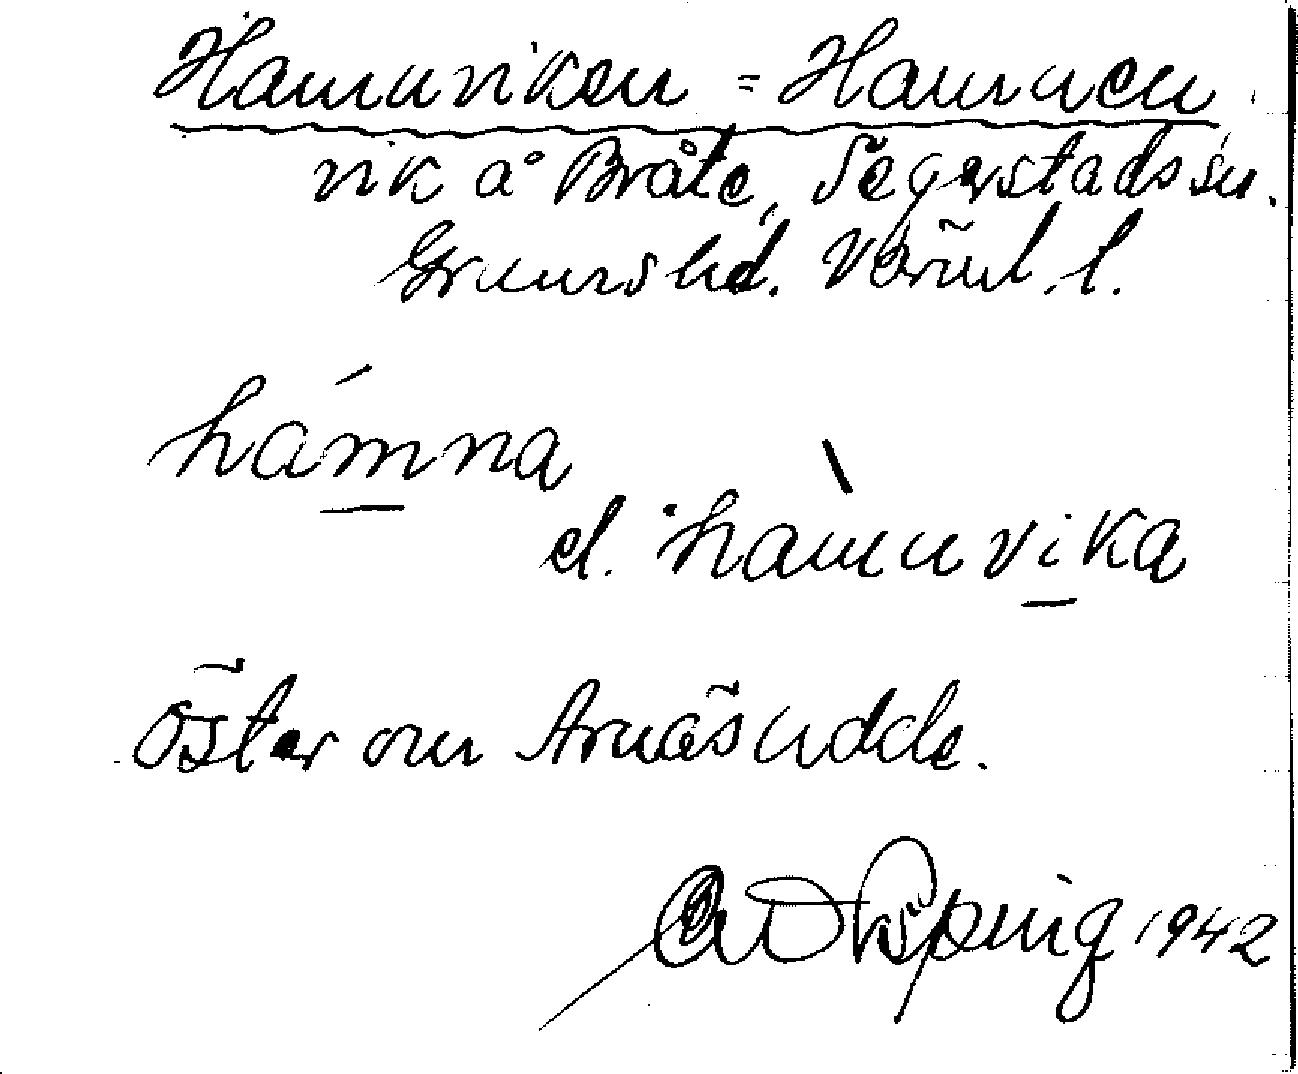 Hamnviken = Hamnen
vik å Bråte, Segerstads sn.
Grums hd. Värml. l.
hámna
el. hàmnvika
öster om Arnäsudde.
1942